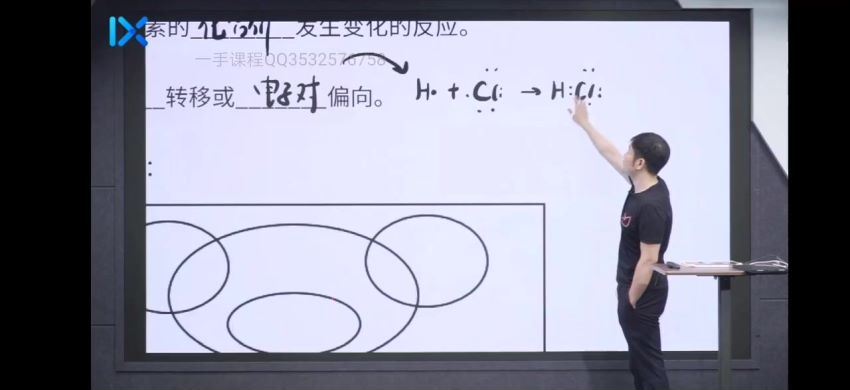 素的 化合价 发生变化的反应。
一手课程QQ3532576758
转移或 电子对 偏向。 H· + ·Cl: → H:Cl:
: